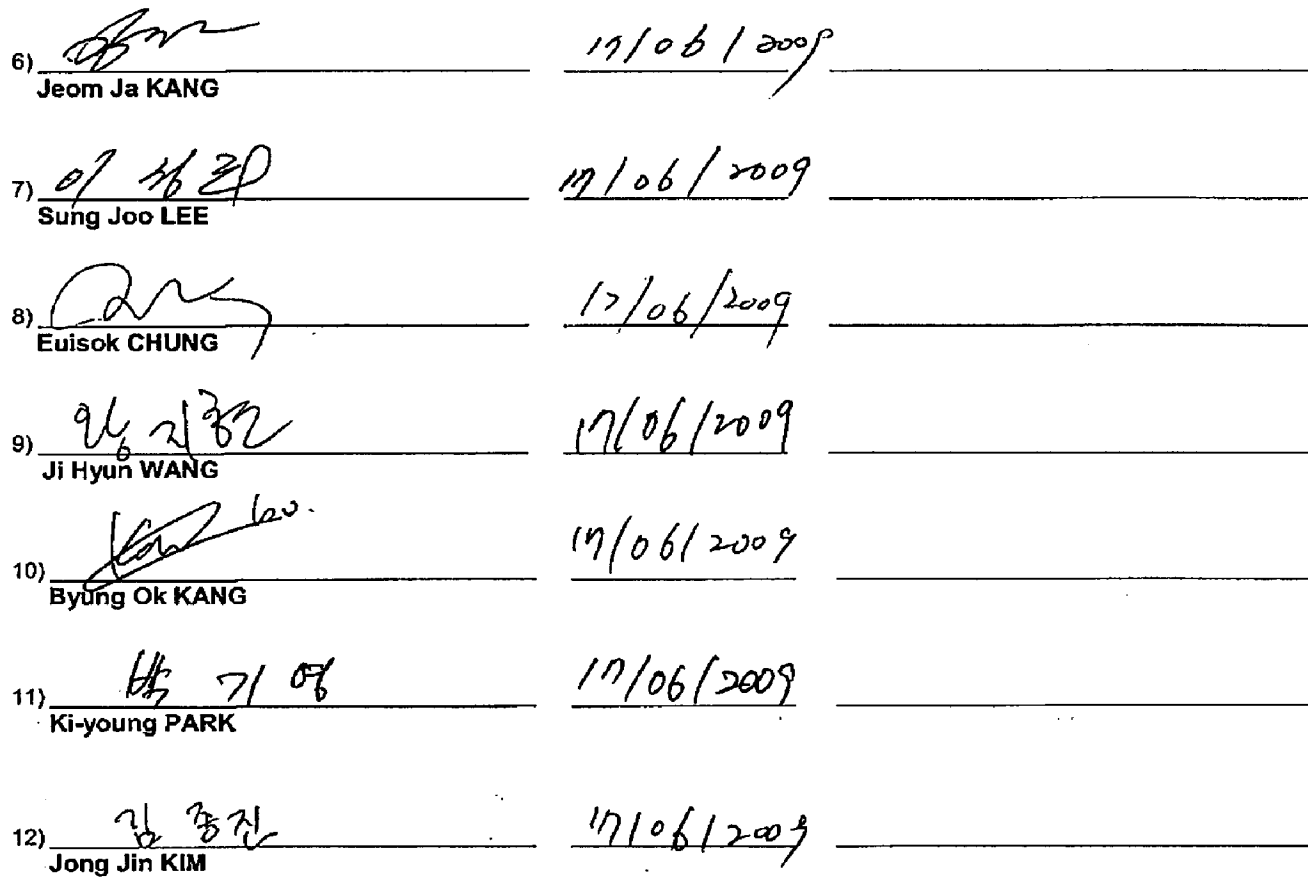 6) 17/06/2009
Jeom Ja KANG
7) 이성주 17/06/2009
Sung Joo LEE
8) 17/06/2009
Euisok CHUNG
9) 왕지현 17/06/2009
Ji Hyun WANG
10) 17/06/2009
Byung Ok KANG
11) 박 기 영 17/06/2009
Ki-young PARK
12) 김 종진 17/06/2009
Jong Jin KIM